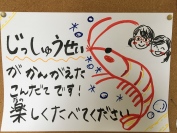 じっしゅうせい
がかんがえた
こんだてです!
楽しくたべてください